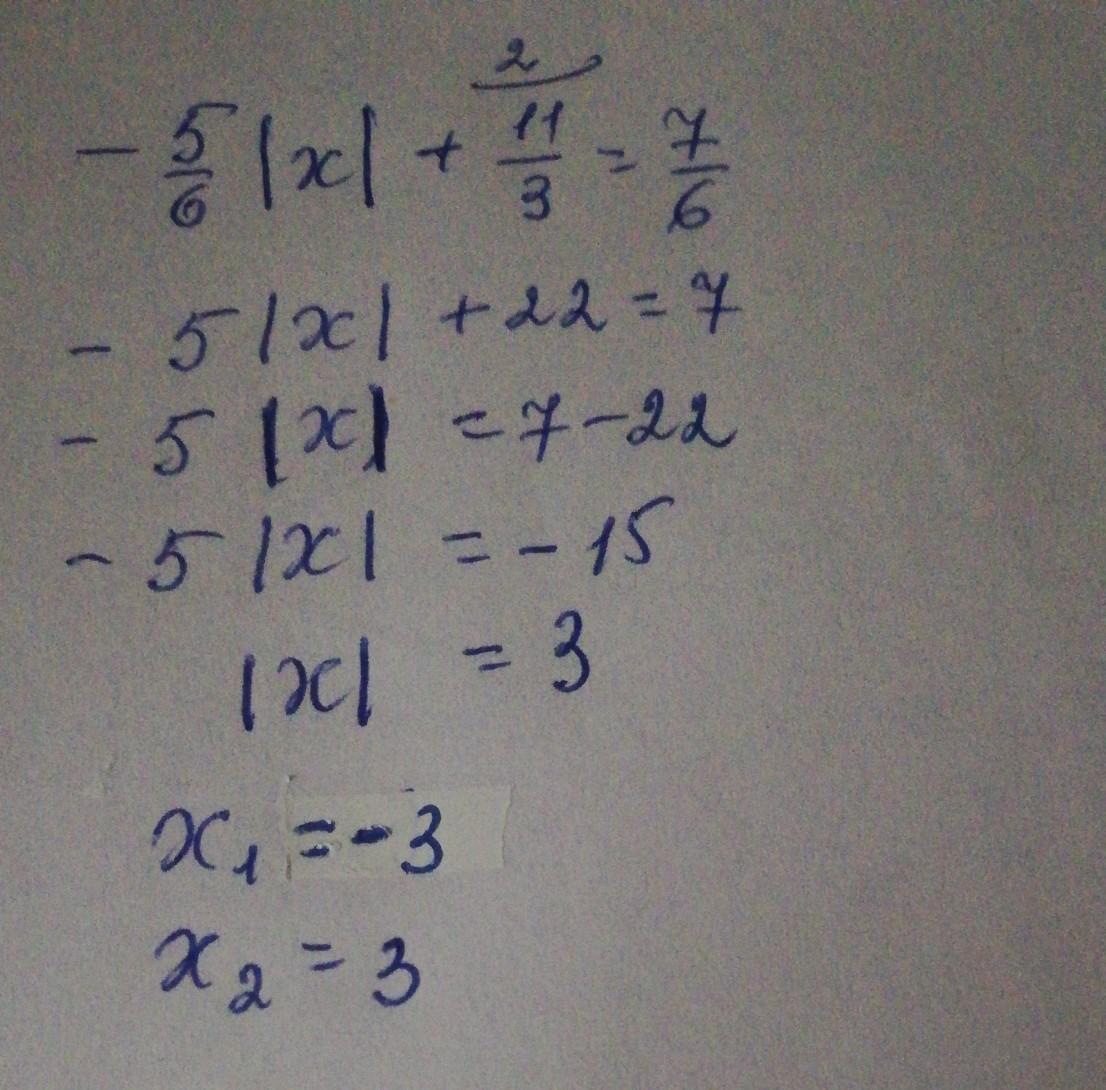 2
- 5/6 |x| + 11/3 = 7/6
- 5 |x| + 22 = 7
- 5 |x| = 7 - 22
- 5 |x| = - 15
|x| = 3
x₁ = - 3
x₂ = 3